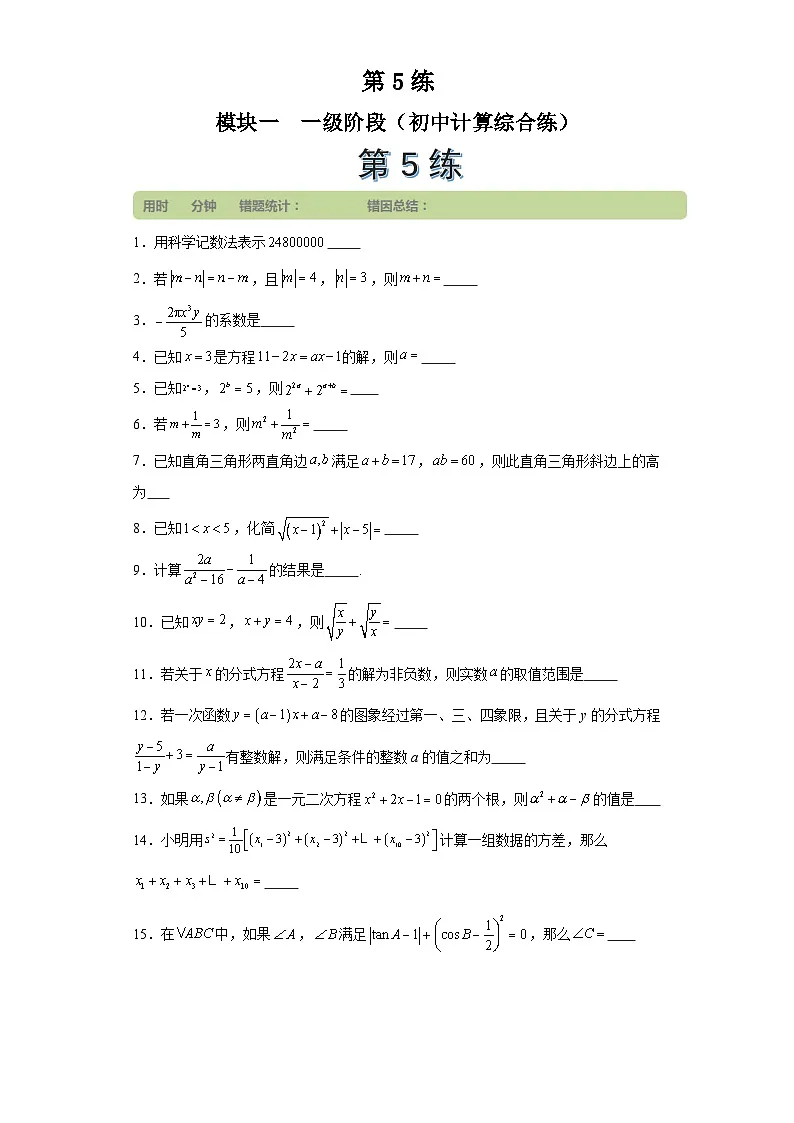 第5练
模块一 一级阶段（初中计算综合练）
第5练
用时 分钟 错题统计： 错因总结：
1．用科学记数法表示24800000 _____
2．若|m−n|=n−m，且|m|=4，|n|=3，则m+n=_____
3．−2πx³y/5的系数是_____
4．已知x=3是方程11−2x=ax−1的解，则a=_____
5．已知2ᵃ=3，2ᵇ=5，则2²ᵃ+2ᵃ⁺ᵇ=____
6．若m+1/m=3，则m²+1/m²=_____
7．已知直角三角形两直角边a,b满足a+b=17，ab=60，则此直角三角形斜边上的高
为___
8．已知1<x<5，化简√(x−1)²+|x−5|=_____
9．计算2a/(a²−16)−1/(a−4)的结果是_____.
10．已知xy=2，x+y=4，则√(x/y)+√(y/x)=_____
11．若关于x的分式方程(2x−a)/(x−2)=1/3的解为非负数，则实数a的取值范围是_____
12．若一次函数y=(a−1)x+a−8的图象经过第一、三、四象限，且关于y的分式方程
(y−5)/(1−y)+3=a/(y−1)有整数解，则满足条件的整数a的值之和为_____
13．如果α,β(α≠β)是一元二次方程x²+2x−1=0的两个根，则α²+α−β的值是____
14．小明用s²=1/10[(x₁−3)²+(x₂−3)²+∟+(x₁₀−3)²]计算一组数据的方差，那么
x₁+x₂+x₃+∟+x₁₀=_____
15．在VABC中，如果∠A，∠B满足|tan A−1|+(cos B−1/2)²=0，那么∠C=____